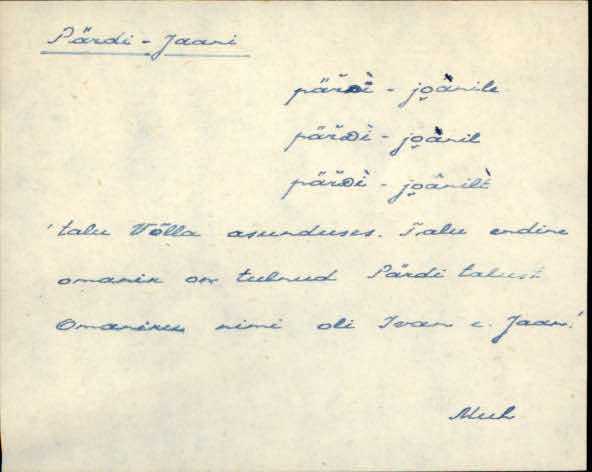 Pärdi-Jaani
pärᴅì - jo̭ànile
pärᴅì - jo̭ànil
pärᴅì - jo̭ànilt
'talu Võlla asunduses. Talu endine
omanik on tulnud Pärdi talust
Omaniku nimi oli Ivan e. Jaan.'
Muh